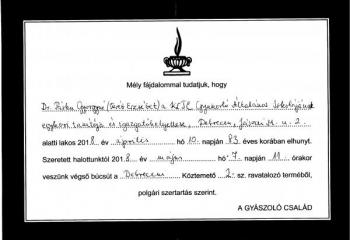 Mély fájdalommal tudatjuk, hogy
Dr. György (Erzsébet) a KLTE Gyakorló Általános Iskolájának
egykori tanítója és igazgatóhelyettese, Debrecen, u. 2.
alatti lakos 2018. év április hó 10. napján 83. éves korában elhunyt.
Szeretett halottunktól 2018. év május hó 7. napján 11. órakor
veszünk végső búcsút a Debrecen Köztemető 2.-sz. ravatalozó terméből,
polgári szertartás szerint.
A GYÁSZOLÓ CSALÁD